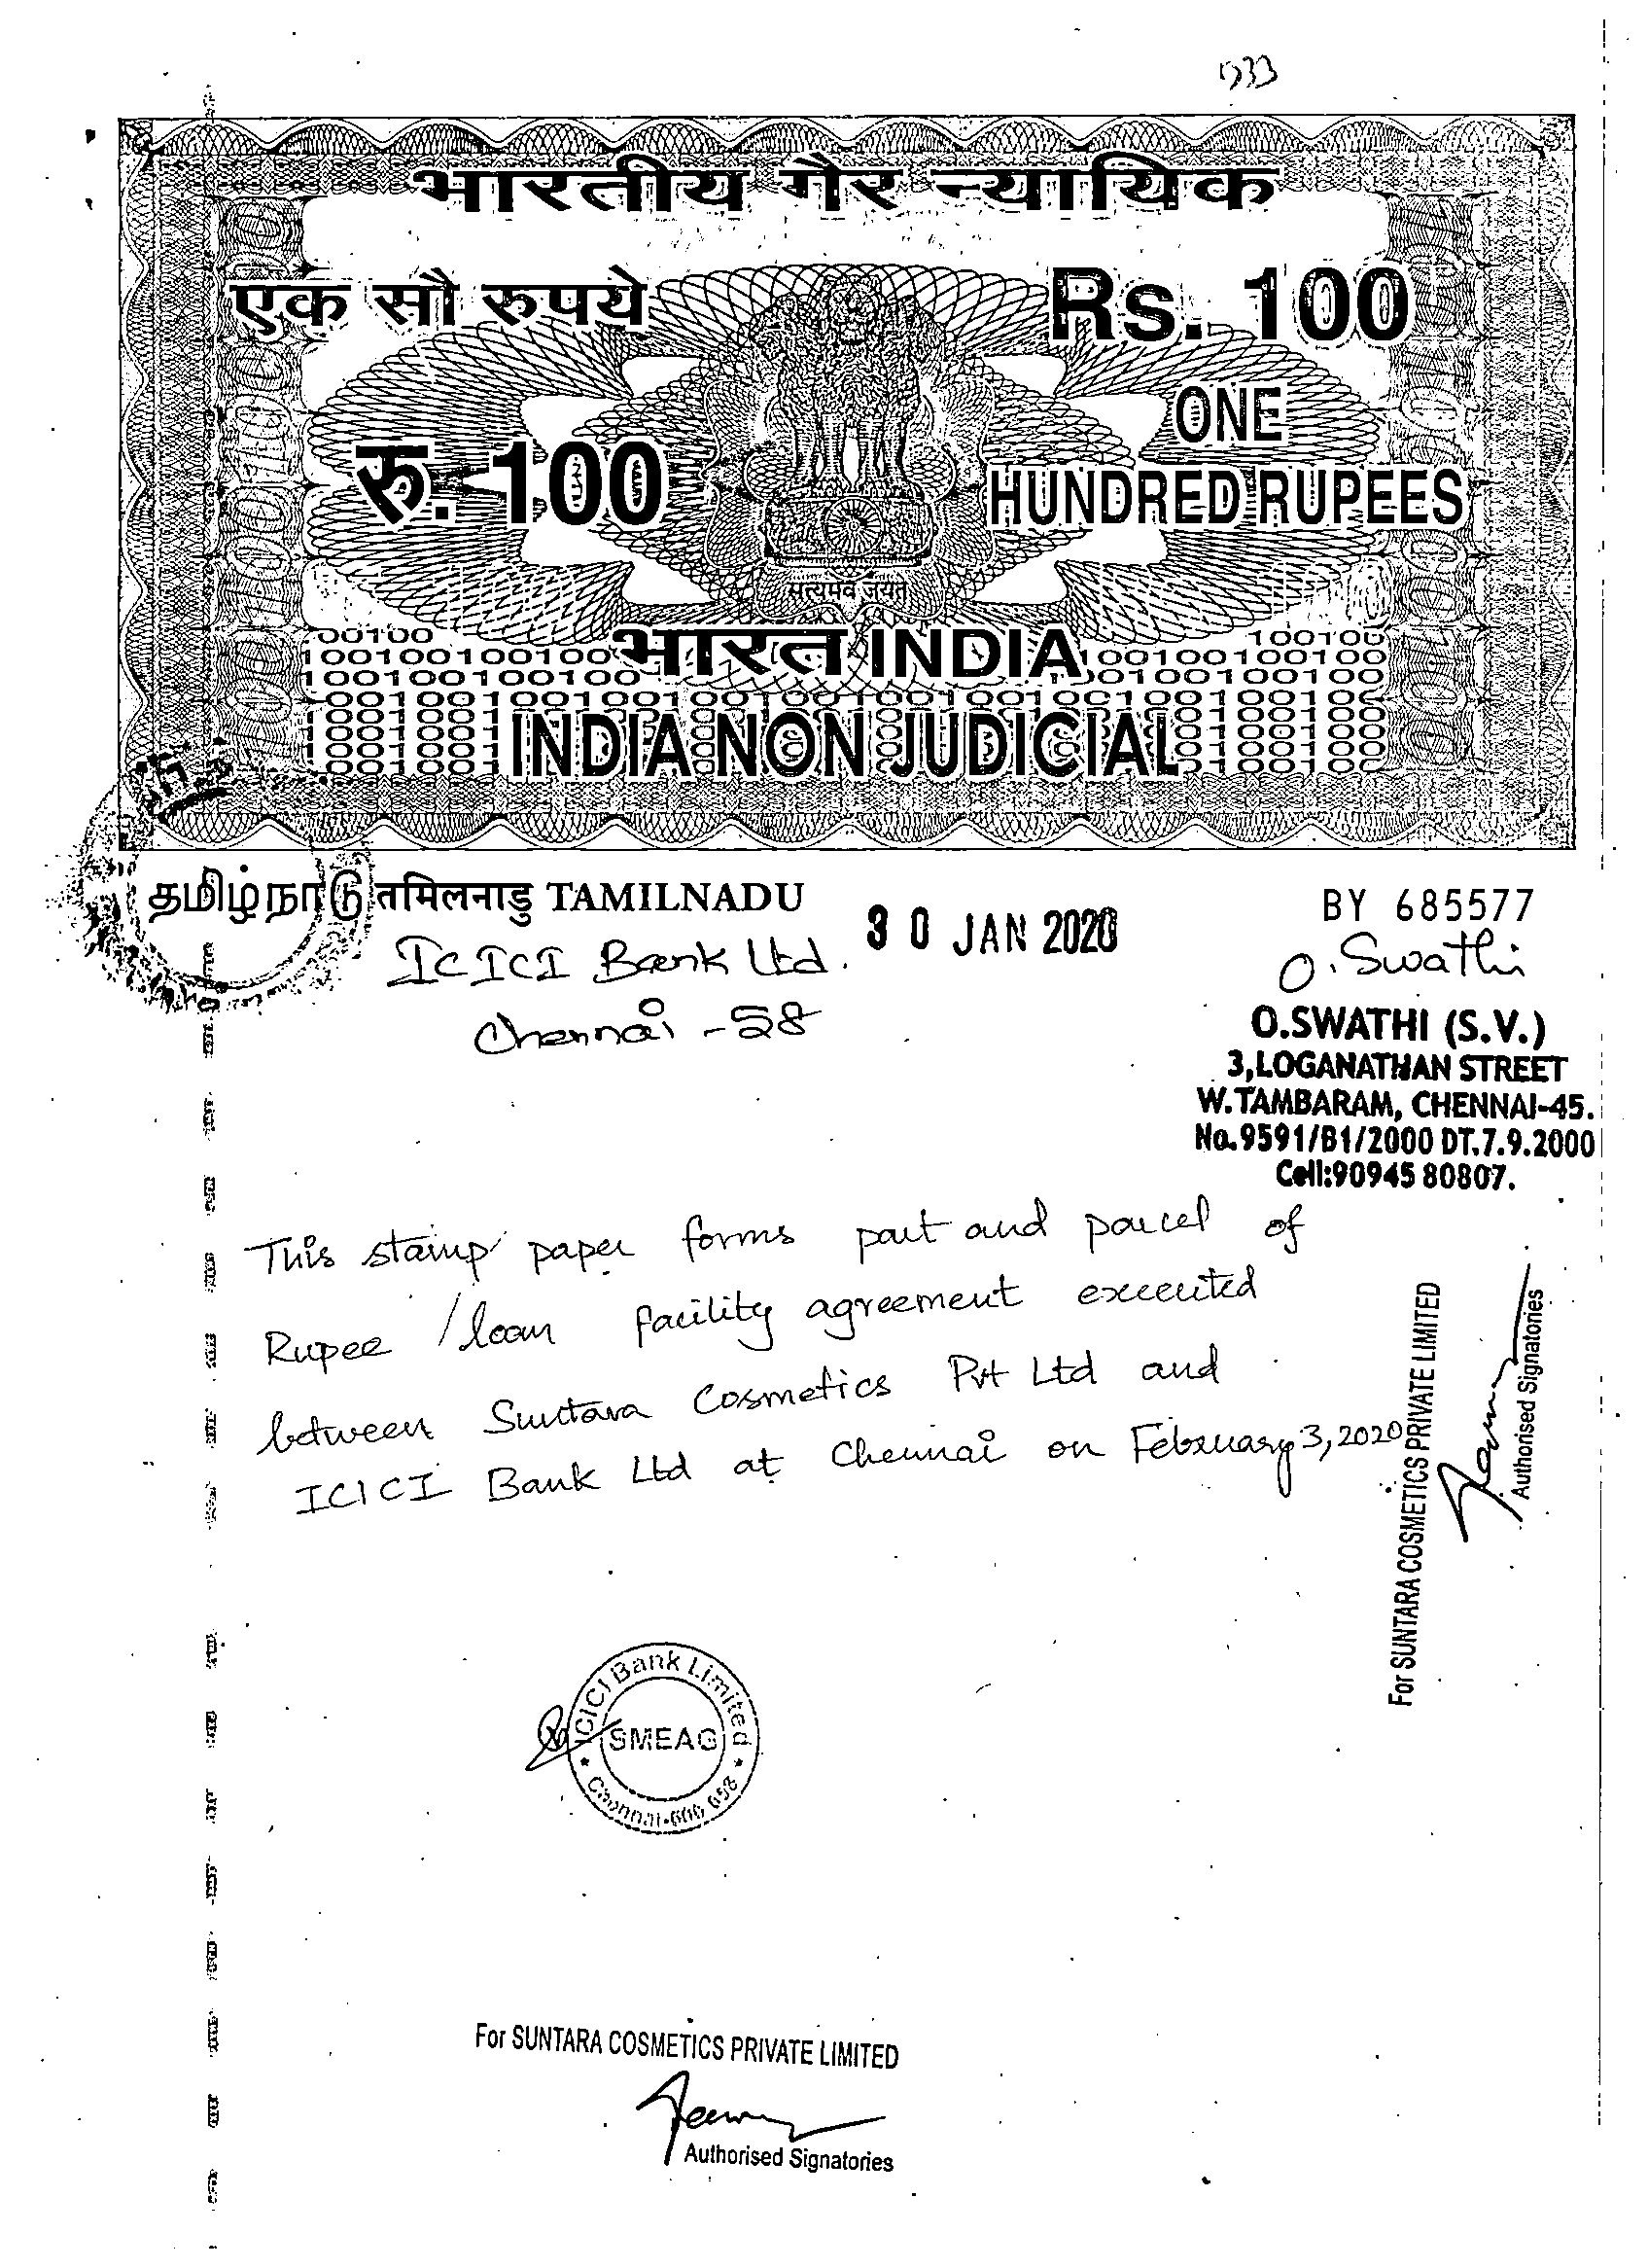 933
भारतीय गैर न्यायिक
एक सौ रुपये
Rs. 100
रु. 100
ONE
HUNDRED RUPEES
सत्यमेव जयते
भारत INDIA
INDIA NON JUDICIAL
தமிழ்நாடு तमिलनाडु TAMILNADU
30 JAN 2020
BY 685577
ICICI Bank Ltd.
Chennai - 58
O. Swathi
O.SWATHI (S.V.)
3,LOGANATHAN STREET
W.TAMBARAM, CHENNAI-45.
No.9591/B1/2000 DT.7.9.2000
Cell:90945 80807.
This stamp paper forms part and parcel of
Rupee / loan facility agreement executed
between Suntara Cosmetics Pvt Ltd and
ICICI Bank Ltd at Chennai on February 3, 2020
For SUNTARA COSMETICS PRIVATE LIMITED
Authorised Signatories
ICICI Bank Limited
SMEAG
* Chennai-600 058 *
For SUNTARA COSMETICS PRIVATE LIMITED
Authorised Signatories